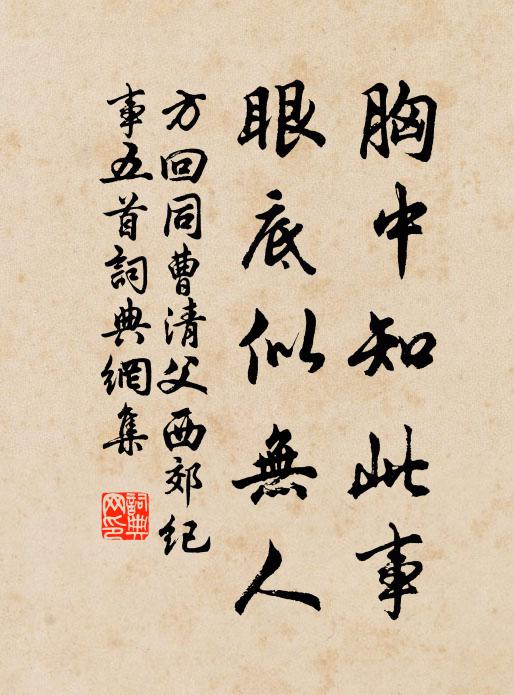 胸中知此事
眼底似無人
方回同曹清父西郊纪
事五首詞典網集
詞典
网印